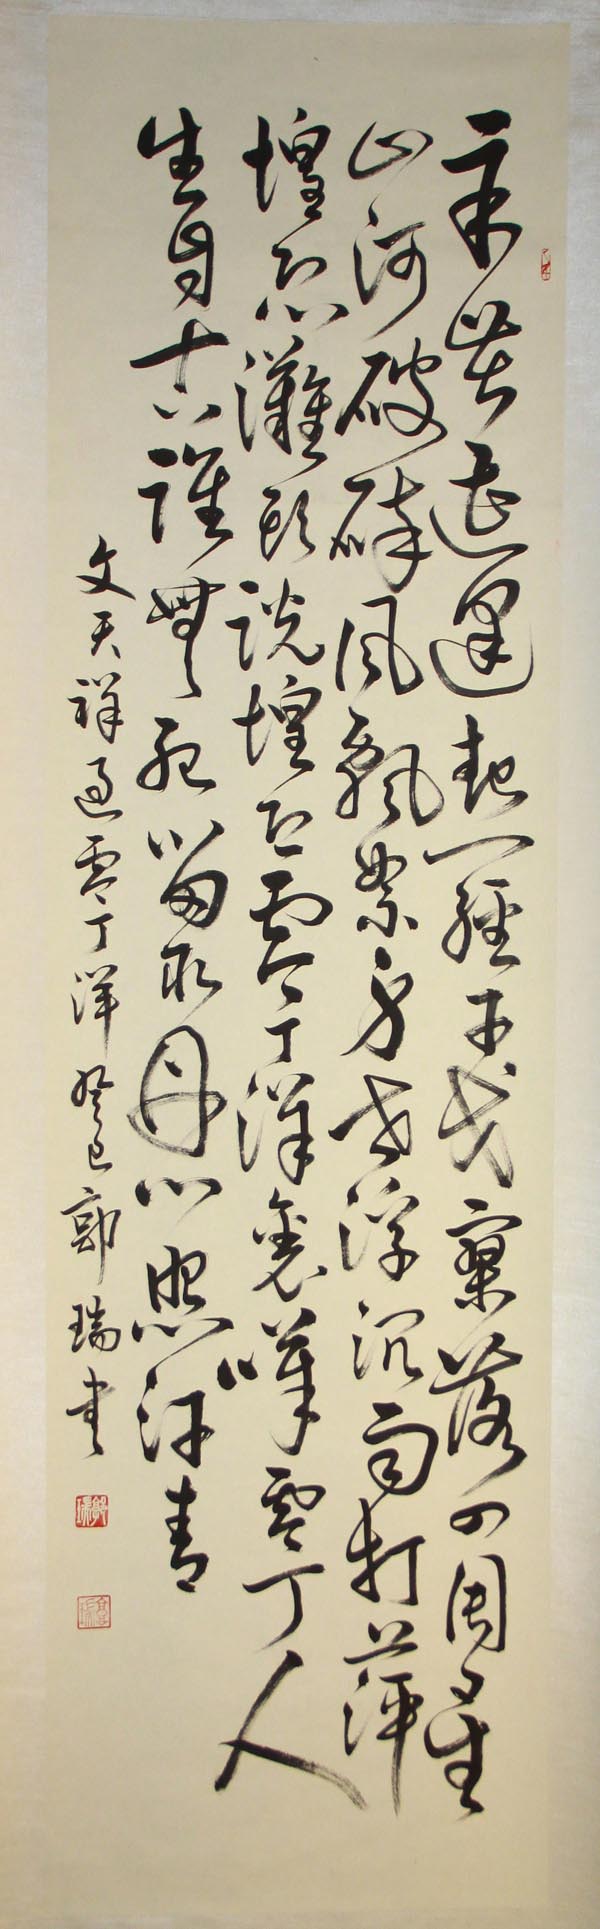 辛苦遭逢起一經干戈寥落四周星
山河破碎风飄絮身世浮沉雨打萍
惶恐灘头說惶恐零丁洋裏嘆零丁人
生自古誰無死留取丹心照汗青
文天祥過零丁洋癸巳郭瑞書